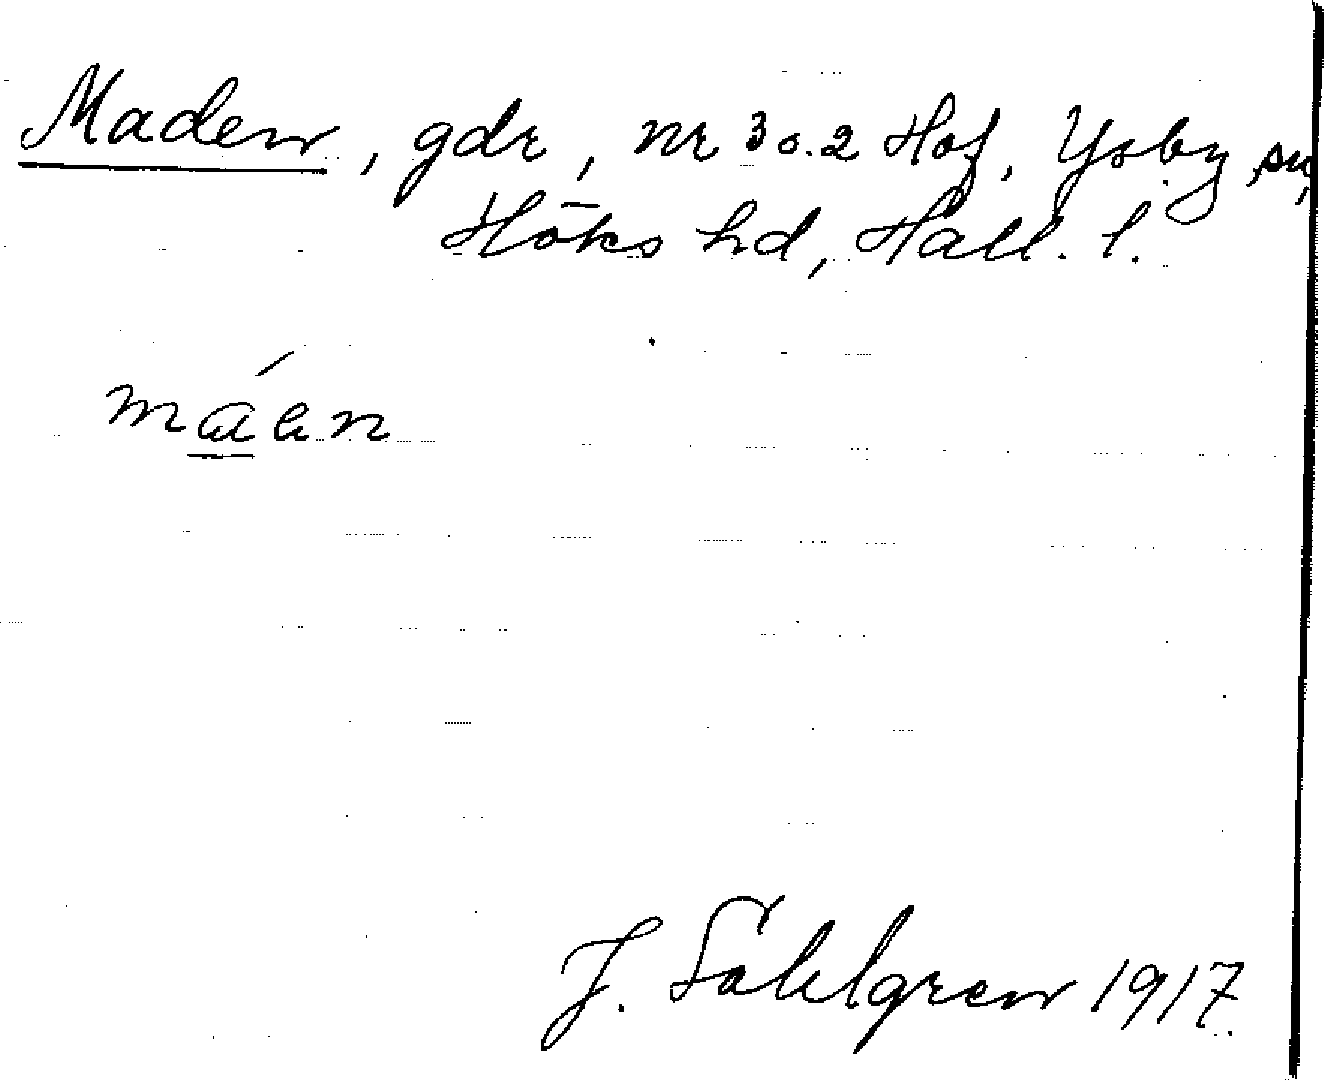 Maden, gdr, nr 3 o. 2 Hof, Ysby sn,
Höks hd, Hall. l.
máen
J. Sahlgren 1917